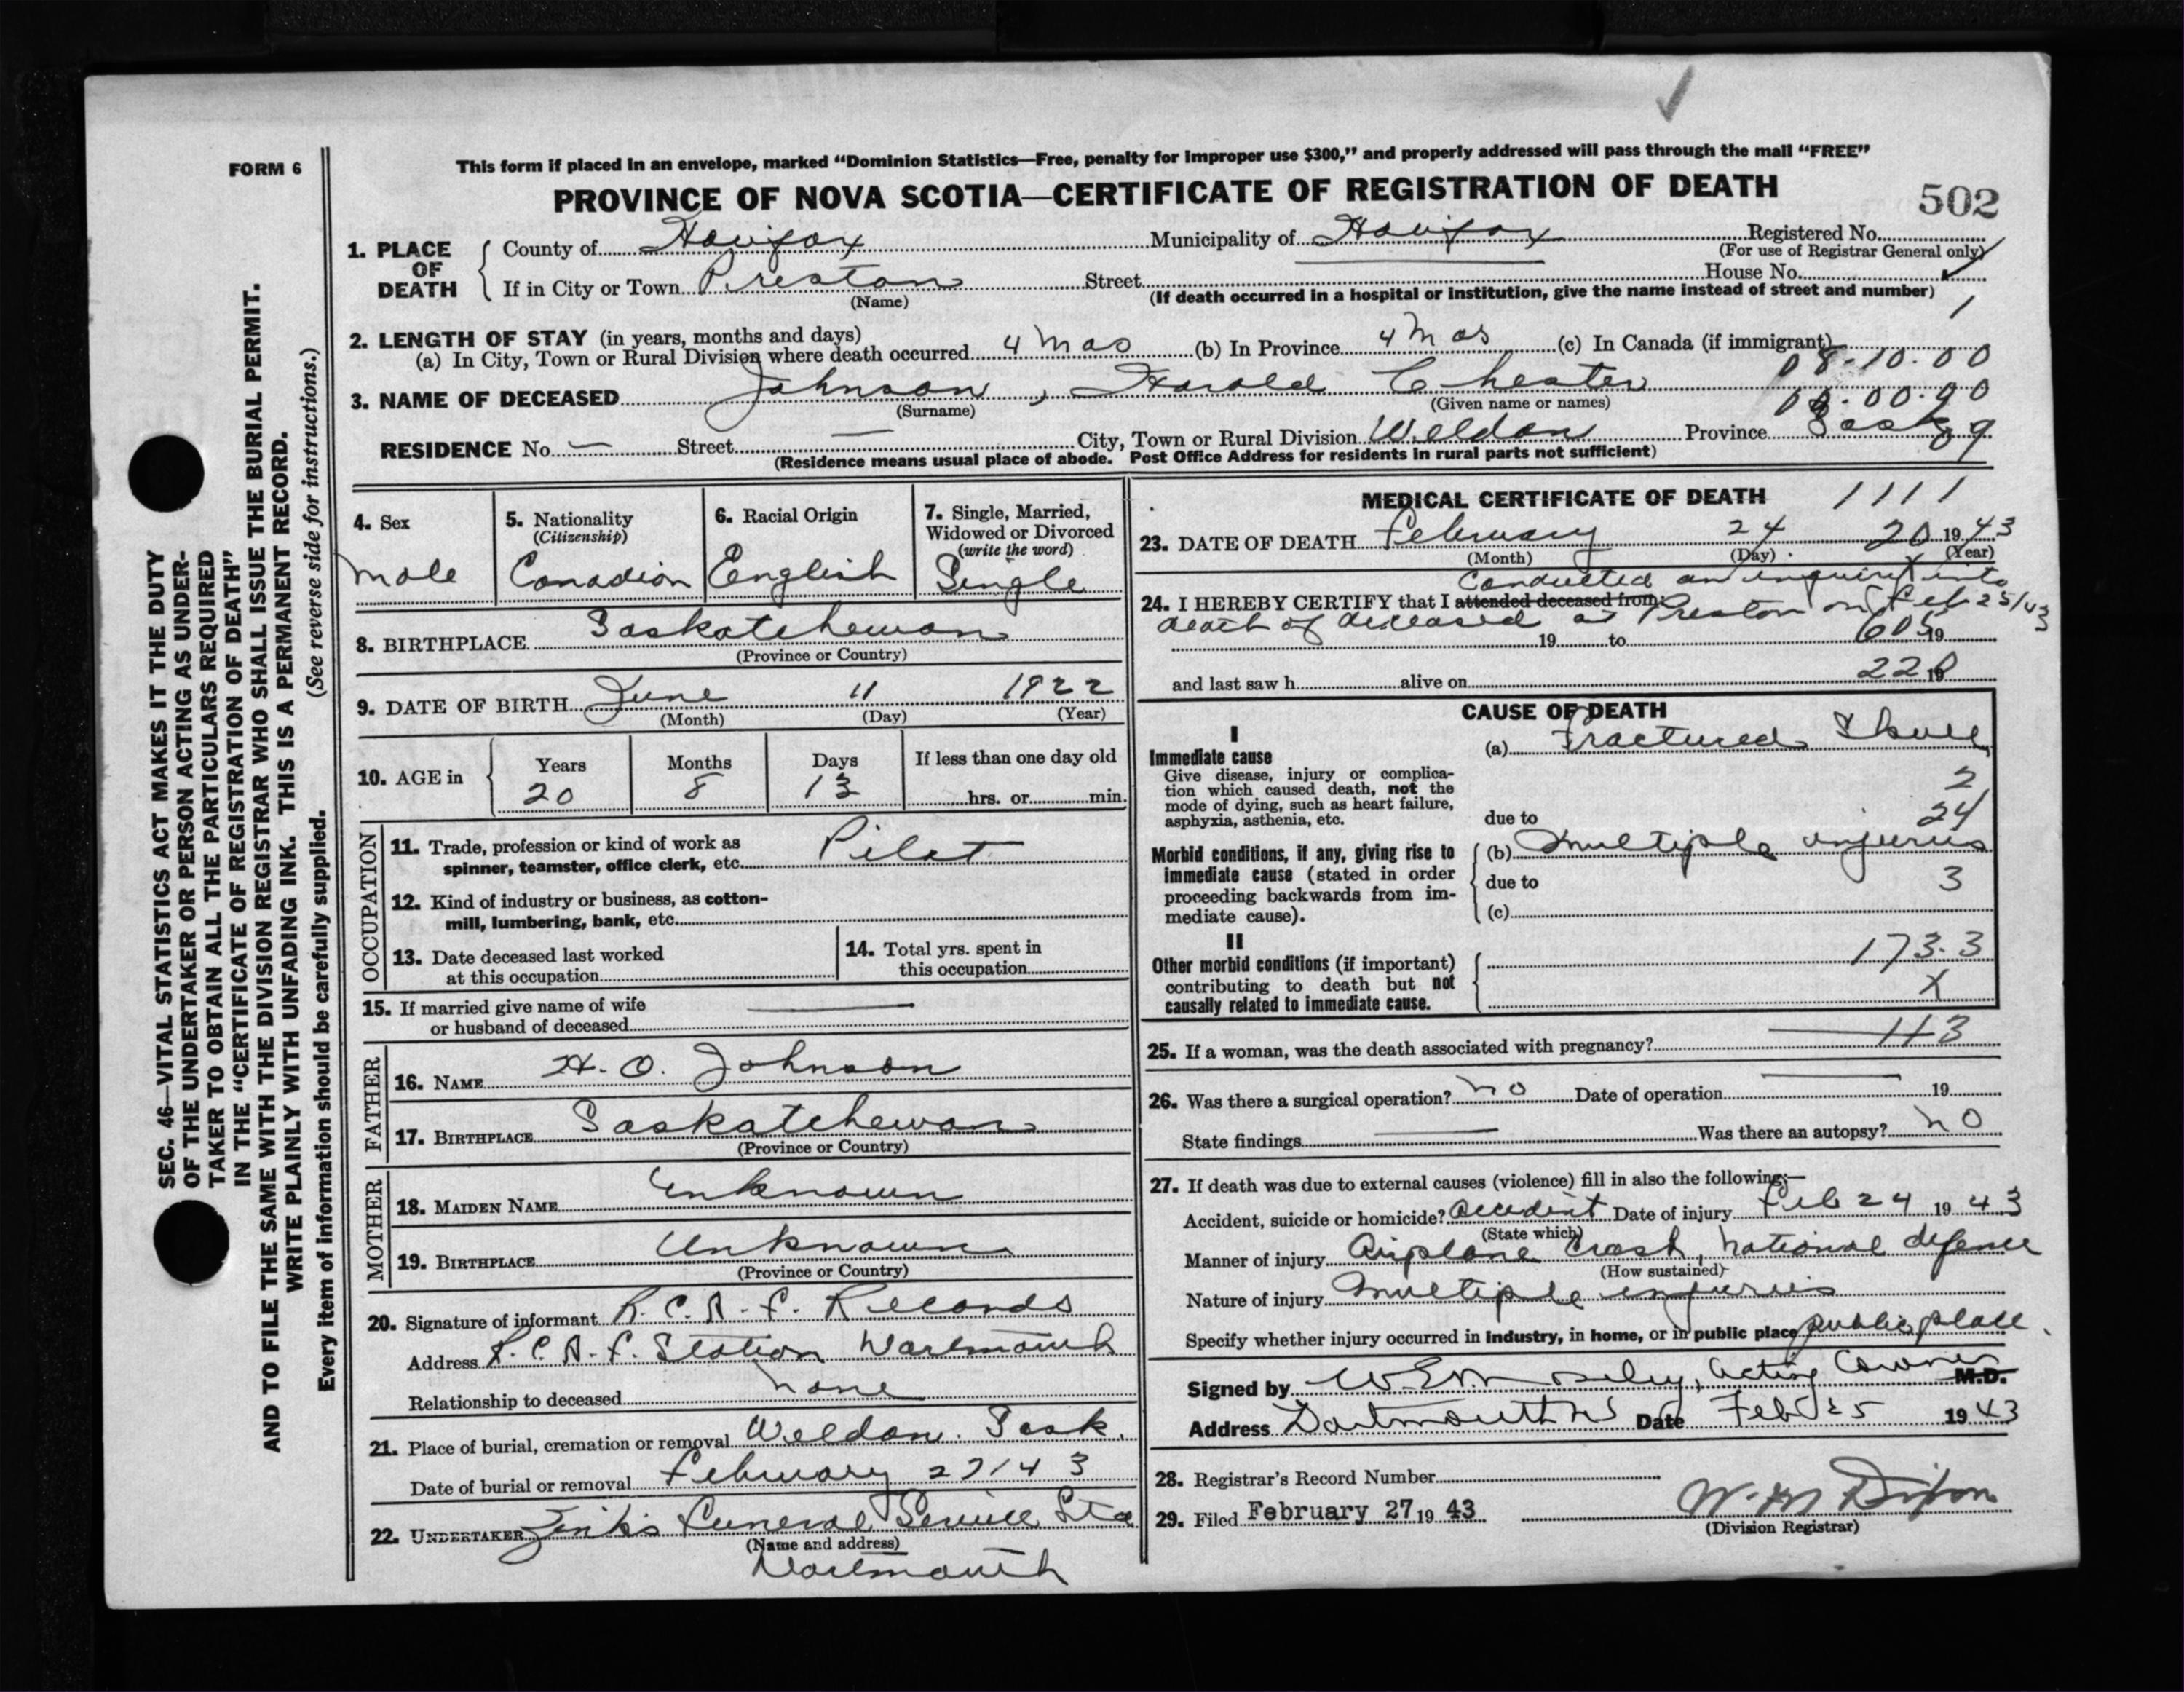 FORM 6
This form if placed in an envelope, marked "Dominion Statistics—Free, penalty for improper use $300," and properly addressed will pass through the mail "FREE"
PROVINCE OF NOVA SCOTIA—CERTIFICATE OF REGISTRATION OF DEATH
502
SEC. 46—VITAL STATISTICS ACT MAKES IT THE DUTY
OF THE UNDERTAKER OR PERSON ACTING AS UNDER-
TAKER TO OBTAIN ALL THE PARTICULARS REQUIRED
IN THE "CERTIFICATE OF REGISTRATION OF DEATH"
AND TO FILE THE SAME WITH THE DIVISION REGISTRAR WHO SHALL ISSUE THE BURIAL PERMIT.
WRITE PLAINLY WITH UNFADING INK. THIS IS A PERMANENT RECORD.
Every item of information should be carefully supplied. (See reverse side for instructions.)
1. PLACE OF DEATH County of Halifax Municipality of Halifax Registered No.
(For use of Registrar General only)
If in City or Town Preston Street House No.
(Name) (If death occurred in a hospital or institution, give the name instead of street and number)
1
2. LENGTH OF STAY (in years, months and days)
(a) In City, Town or Rural Division where death occurred 4 Mos (b) In Province 4 Mos (c) In Canada (if immigrant)
08-10-00
3. NAME OF DECEASED Johnson, Harold Chester
(Surname) (Given name or names)
RESIDENCE No. — Street — City, Town or Rural Division Weldon Province Sask
(Residence means usual place of abode. Post Office Address for residents in rural parts not sufficient)
4. Sex
male
5. Nationality
(Citizenship)
Canadian
6. Racial Origin
English
7. Single, Married,
Widowed or Divorced
(write the word)
Single
8. BIRTHPLACE Saskatchewan
(Province or Country)
9. DATE OF BIRTH June 11 1922
(Month) (Day) (Year)
10. AGE in Years Months Days If less than one day old
20 8 13 hrs. or min.
OCCUPATION
11. Trade, profession or kind of work as
spinner, teamster, office clerk, etc. Pilot
12. Kind of industry or business, as cotton-
mill, lumbering, bank, etc.
13. Date deceased last worked
at this occupation
14. Total yrs. spent in
this occupation
15. If married give name of wife —
or husband of deceased
FATHER
16. NAME H. O. Johnson
17. BIRTHPLACE Saskatchewan
(Province or Country)
MOTHER
18. MAIDEN NAME Unknown
19. BIRTHPLACE Unknown
(Province or Country)
20. Signature of informant R.C.A.F. Records
Address R.C.A.F. Station Dartmouth
Relationship to deceased none
21. Place of burial, cremation or removal Weldon. Sask.
Date of burial or removal February 27/43
22. UNDERTAKER Zink's Funeral Service Ltd
(Name and address)
Dartmouth
MEDICAL CERTIFICATE OF DEATH 1111
23. DATE OF DEATH February 24 20 1943
(Month) (Day) (Year)
Conducted an inquiry into
24. I HEREBY CERTIFY that I attended deceased from
death of deceased at Preston on Feb 25/43
19 to 605 19
and last saw h alive on 19
CAUSE OF DEATH
I
Immediate cause
Give disease, injury or complica-
tion which caused death, not the
mode of dying, such as heart failure,
asphyxia, asthenia, etc.
(a) Fractured Skull
2
24
due to
Morbid conditions, if any, giving rise to
immediate cause (stated in order
proceeding backwards from im-
mediate cause).
(b) Multiple injuries
due to 3
(c)
II
Other morbid conditions (if important)
contributing to death but not
causally related to immediate cause.
173.3
X
25. If a woman, was the death associated with pregnancy? — 113
26. Was there a surgical operation? no Date of operation — 19
State findings — Was there an autopsy? no
27. If death was due to external causes (violence) fill in also the following:—
Accident, suicide or homicide? Accident Date of injury Feb 24 1943
(State which)
Manner of injury Airplane Crash, national defence
(How sustained)
Nature of injury Multiple injuries
Specify whether injury occurred in industry, in home, or in public place public place
Signed by Acting Coroner M.D.
Address Dartmouth NS Date Feb 25 1943
28. Registrar's Record Number
29. Filed February 27 19 43
(Division Registrar)